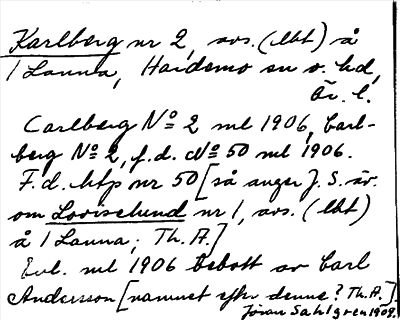 Karlberg nr 2, avs. (lht) å
1 Launa, Hardemo sn o. hd,
Ör. l.
Carlberg No 2 ml 1906, Carl-
berg No 2, f.d. No 50 ml 1906.
F.d. btp nr 50 [så anger J. S. är.
om Loviselund nr 1, avs. (lht)
å 1 Launa; Th. A.]
Enl. ml 1906 bebott av Carl
Andersson [namnet efter denne? Th. A.].
Jöran Sahlgren 1909.